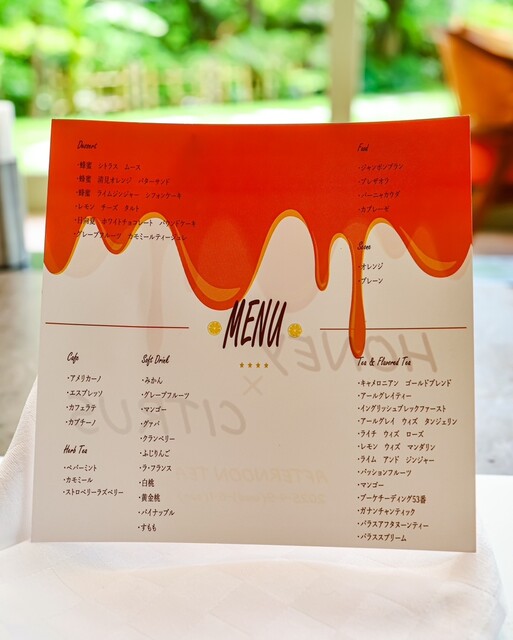 Dessert
・蜂蜜 シトラス ムース
・蜂蜜 清見オレンジ バターサンド
・蜂蜜 ライムジンジャー シフォンケーキ
・レモン チーズ タルト
・日向夏 ホワイトチョコレート パウンドケーキ
・グレープフルーツ カモミールティージュレ
Food
・ジャンボンブラン
・ブレザオラ
・バーニャカウダ
・カプレーゼ
Scone
・オレンジ
・プレーン
MENU
Cafe
・アメリカーノ
・エスプレッソ
・カフェラテ
・カプチーノ
Herb Tea
・ペパーミント
・カモミール
・ストロベリーラズベリー
Soft Drink
・みかん
・グレープフルーツ
・マンゴー
・グァバ
・クランベリー
・ふじりんご
・ラ・フランス
・白桃
・黄金桃
・パイナップル
・すもも
Tea & Flavored Tea
・キャメロニアン ゴールドブレンド
・アールグレイティー
・イングリッシュブレックファースト
・アールグレイ ウィズ タンジェリン
・ライチ ウィズ ローズ
・レモン ウィズ マンダリン
・ライム アンド ジンジャー
・パッションフルーツ
・マンゴー
・ブーケチーディング53番
・ガナンチャンティック
・パラスアフタヌーンティー
・パラススプリーム
HONEY
×
CITRUS
AFTERNOON TEA